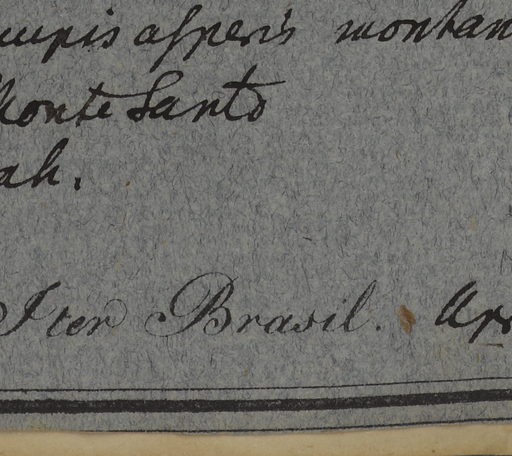 rupis asperis montan
Monte Santo
ah.
Iter Brasil. Apr